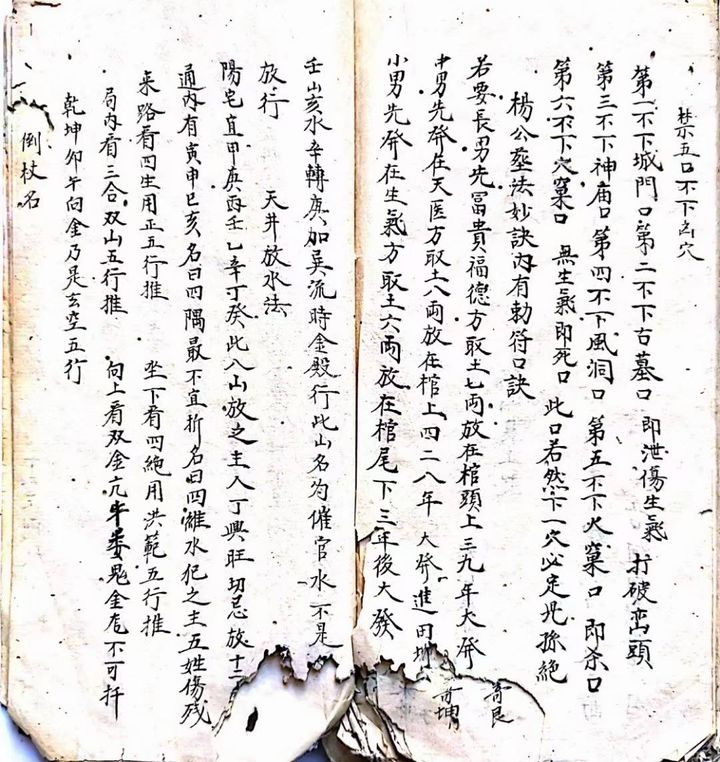 禁五口不下凶穴
第一不下城門口第二不下古墓口 即泄傷生氣 打破巒頭
第三不下神庙口第四不下風洞口 第五不下火窠口 即杀口
第六不下穴窠口 無生氣即死口 此口若然下一穴必定児孫絶
楊公塟法妙訣内有勅符口訣
若要長男先冨貴福德方取土七両放在棺頭上三九年大發
中男先發在天医方取土八両放在棺上四二八年 大發進田
小男先發在生氣方取土六両放在棺尾下三年後大發
寄艮
寄坤
壬山亥水辛轉庚加巽流時金殿行此山名为催官水不是
放行 天井放水法
陽宅宜甲庚丙壬乙辛丁癸此八山放之主人丁興旺切忌放十二
通内有寅申巳亥名曰四隅最不宜折名曰四離水犯之主五姓傷残
来路看四生用正五行推 坐下看四絶用洪範五行推
局内看三合双山五行推 向上看双金亢牛娄鬼金危不可扦
乾坤卯午向金乃是玄空五行
倒杖名